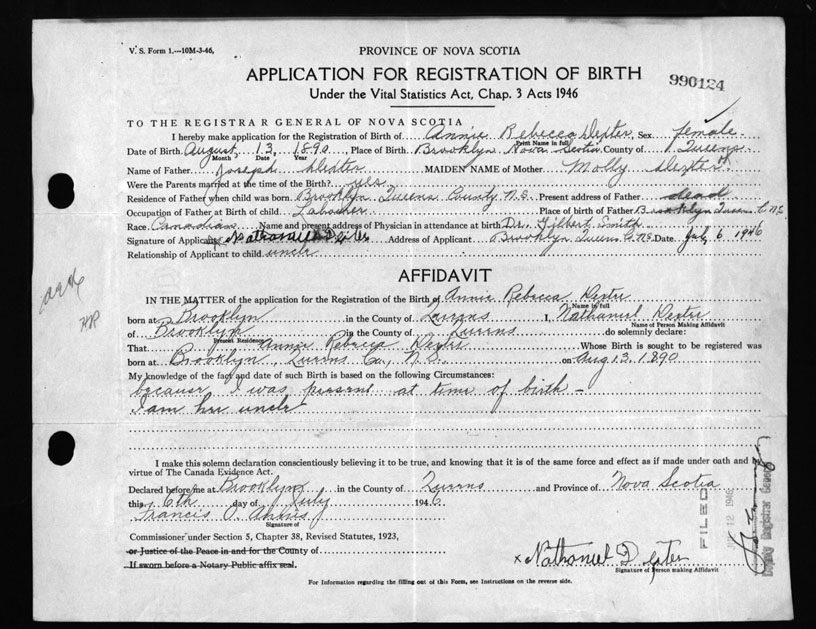 V. S. Form 1.—10M-3-46,
PROVINCE OF NOVA SCOTIA
APPLICATION FOR REGISTRATION OF BIRTH
990124
Under the Vital Statistics Act, Chap. 3 Acts 1946
TO THE REGISTRAR GENERAL OF NOVA SCOTIA
I hereby make application for the Registration of Birth of Annie Rebecca Dexter, Sex female
Print Name in full
Date of Birth August 13, 1890 Place of Birth Brooklyn Nova Scotia County of Queens
Month Date Year
Name of Father Joseph Dexter MAIDEN NAME of Mother Molly Dexter
Were the Parents married at the time of the Birth? yes
Residence of Father when child was born Brooklyn Queens County N.S. Present address of Father dead
Occupation of Father at Birth of child Labourer Place of birth of Father Brooklyn Queens C. N.S.
Race Canadian Name and present address of Physician in attendance at birth Dr. Gilbert Smith
Signature of Applicant Nathaniel Dexter Address of Applicant Brooklyn Queens C. N.S. Date July 6 1946
Relationship of Applicant to child uncle
AFFIDAVIT
IN THE MATTER of the application for the Registration of the Birth of Annie Rebecca Dexter
Name in full
born at Brooklyn in the County of Queens I, Nathaniel Dexter
Name of Person Making Affidavit
of Brooklyn in the County of Queens do solemnly declare:
Present Residence
That Annie Rebecca Dexter Whose Birth is sought to be registered was
born at Brooklyn, Queens Co., N.S. on Aug 13, 1890
My knowledge of the fact and date of such Birth is based on the following Circumstances:
because I was present at time of birth –
I am her uncle
I make this solemn declaration conscientiously believing it to be true, and knowing that it is of the same force and effect as if made under oath and by
virtue of The Canada Evidence Act.
Declared before me at Brooklyn in the County of Queens and Province of Nova Scotia
this 6th day of July 1946
Francis
Signature of
Commissioner under Section 5, Chapter 38, Revised Statutes, 1923,
or Justice of the Peace in and for the County of
If sworn before a Notary Public affix seal.
x Nathaniel Dexter
Signature of Person making Affidavit
For Information regarding the filling out of this Form, see Instructions on the reverse side.
FILED
12 1946
Deputy Registrar General